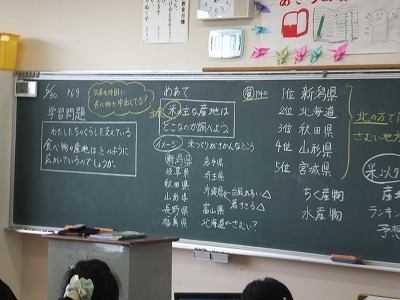 6/30
P69
学習問題
わたしたちのくらしを支えている
食べ物の産地は、どのように
広がっているのでしょうか。
めあて
米の主な産地は
どこなのか調べよう。
イメージ 米づくりがさかんなところ
新潟県
岐阜県
秋田県
山形県
長野県
福島県
岩手県
埼玉県
沖縄県←台風の多い△
暑すぎる△
富山県
北海道←さむい?
P140
1位 新潟県
2位 北海道
3位 秋田県
4位 山形県
5位 宮城県
ちく産物
水産物
北の方で
さむい地方
米以外
産
ランキン
予想